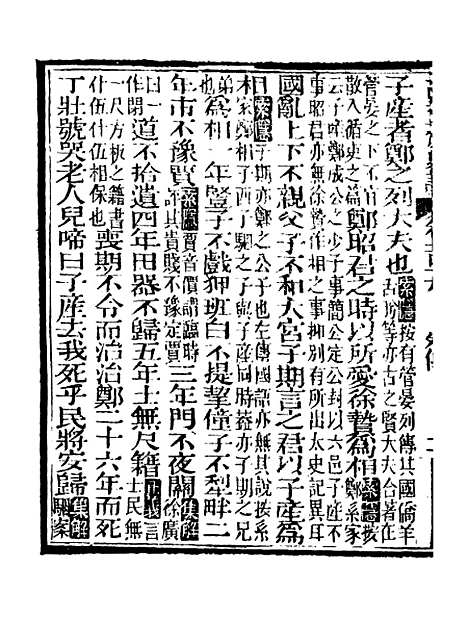 子產者鄭之列大夫也索隱按有管晏列傳其國僑羊舌肸等亦古之賢大夫合著在
管晏之下不宜散入循吏之篇鄭昭君之時以所愛徐摯爲相索隱按鄭系家
云子產鄭成公之少子事簡公定公封以六邑子產不事昭君亦無徐摯作相之事抑別有所出太史記異耳
國亂上下不親父子不和大宮子期言之君以子產爲
相索隱子期亦鄭之公子也左傳國語亦無其說按系家鄭相子西子駟之子與子產同時蓋亦子期之兄
弟也爲相一年豎子不戲狎班白不提挈僮子不犁畔二
年市不豫賈索隱賈音價謂臨時評其貴賤不豫定賈三年門不夜關集解徐廣
曰一作閉道不拾遺四年田器不歸五年士無尺籍正義言士民無
一尺方板之籍書什伍什伍相保也喪期不令而治治鄭二十六年而死
丁壯號哭老人兒啼曰子產去我死乎民將安歸集解駰案